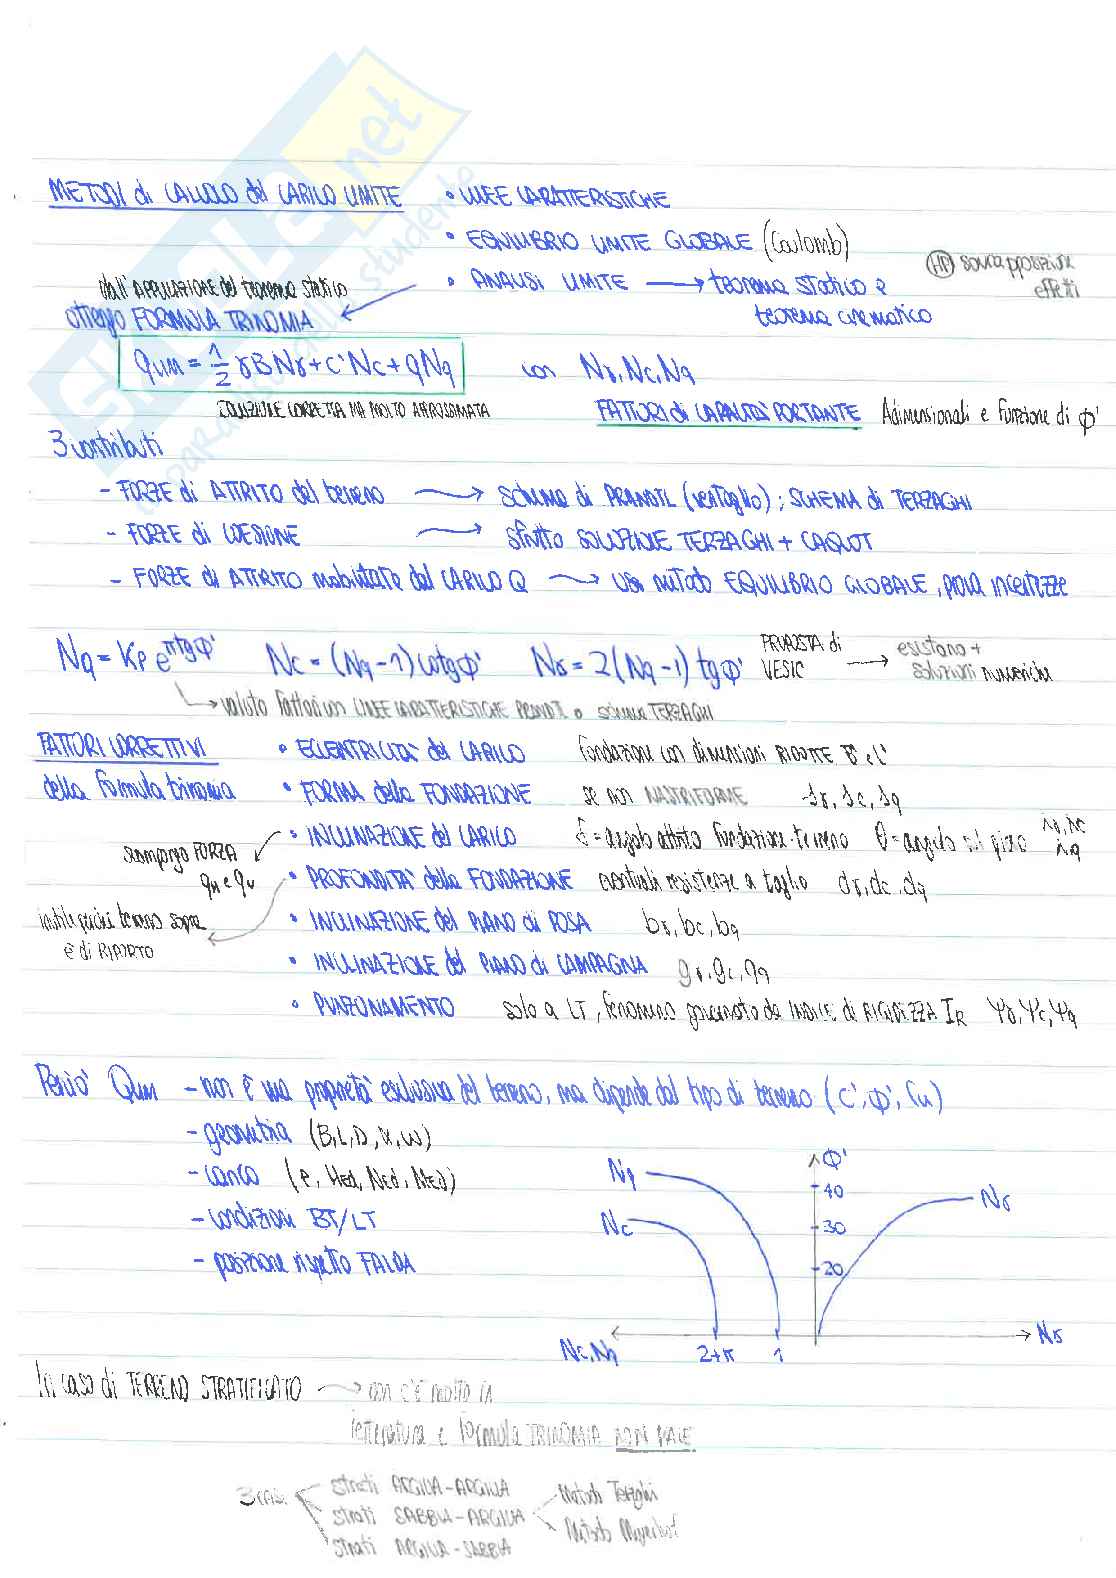 METODI di CALCOLO del CARICO LIMITE • LINEE CARATTERISTICHE
• EQUILIBRIO LIMITE GLOBALE (Coulomb)
• ANALISI LIMITE → teorema statico e
teorema cinematico
(HP) sovrapposizione
effetti
dall'APPLICAZIONE del teorema statico
ottengo FORMULA TRINOMIA
qLIM = 1/2 γBNγ + c'Nc + qNq con Nγ, Nc, Nq
SOLUZIONE CORRETTA MA MOLTO APPROSSIMATA
FATTORI di CAPACITA' PORTANTE Adimensionali e funzione di Φ'
3 contributi
- FORZE di ATTRITO del terreno → schema di PRANDTL (ventaglio); SCHEMA di TERZAGHI
- FORZE di COESIONE → sfrutto SOLUZIONE TERZAGHI + CAQUOT
- FORZE di ATTRITO mobilitate dal CARICO Q → uso metodo EQUILIBRIO GLOBALE, prova incertezze
Nq = Kp e^πtgΦ' Nc = (Nq-1)cotgΦ' Nγ = 2(Nq-1)tgΦ' PROPOSTA di
VESIC → esistono +
soluzioni numeriche
→ valuto fattori con LINEE CARATTERISTICHE PRANDTL o schema TERZAGHI
FATTORI CORRETTIVI
della formula trinomia
• ECCENTRICITA' del CARICO fondazione con dimensioni RIDOTTE B' e L'
• FORMA della FONDAZIONE se non NASTRIFORME sγ, sc, sq
• INCLINAZIONE del CARICO δ = angolo attrito fondazione-terreno θ = angolo sul piano iγ, ic
iq
scompongo FORZA
qH e qV
• PROFONDITA' della FONDAZIONE eventuali resistenze a taglio dγ, dc, dq
inutile perché terreno sopra
è di RIPORTO
• INCLINAZIONE del PIANO di POSA bγ, bc, bq
• INCLINAZIONE del PIANO di CAMPAGNA gγ, gc, gq
• PUNZONAMENTO solo a LT, fenomeno governato da INDICE di RIGIDEZZA IR Ψγ, Ψc, Ψq
Perciò QLIM - non è una proprietà esclusiva del terreno, ma dipende dal tipo di terreno (c', Φ', Cu)
- geometria (B, L, D, α, ω)
- carico (e, HEd, NEd, MEd)
- condizioni BT/LT
- posizione rispetto FALDA
Φ'
Nq
Nc
40
30
20
Nγ
Nc, Nq
2+π
1
Nγ
In caso di TERRENO STRATIFICATO → non c'è molto in
letteratura e formula TRINOMIA NON VALE
3 casi
strati ARGILLA-ARGILLA
strati SABBIA-ARGILLA
strati ARGILLA-SABBIA
Metodo Terzaghi
Metodo Meyerhof
SKUOLA.net